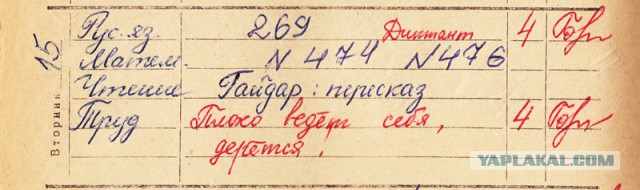 Вторник 15
Рус. яз. 269 Диктант 4
Матем. N 474 N 476
Чтение Гайдар: пересказ
Труд Плохо ведёт себя, 4
дерётся.
YAPLAKAL.COM